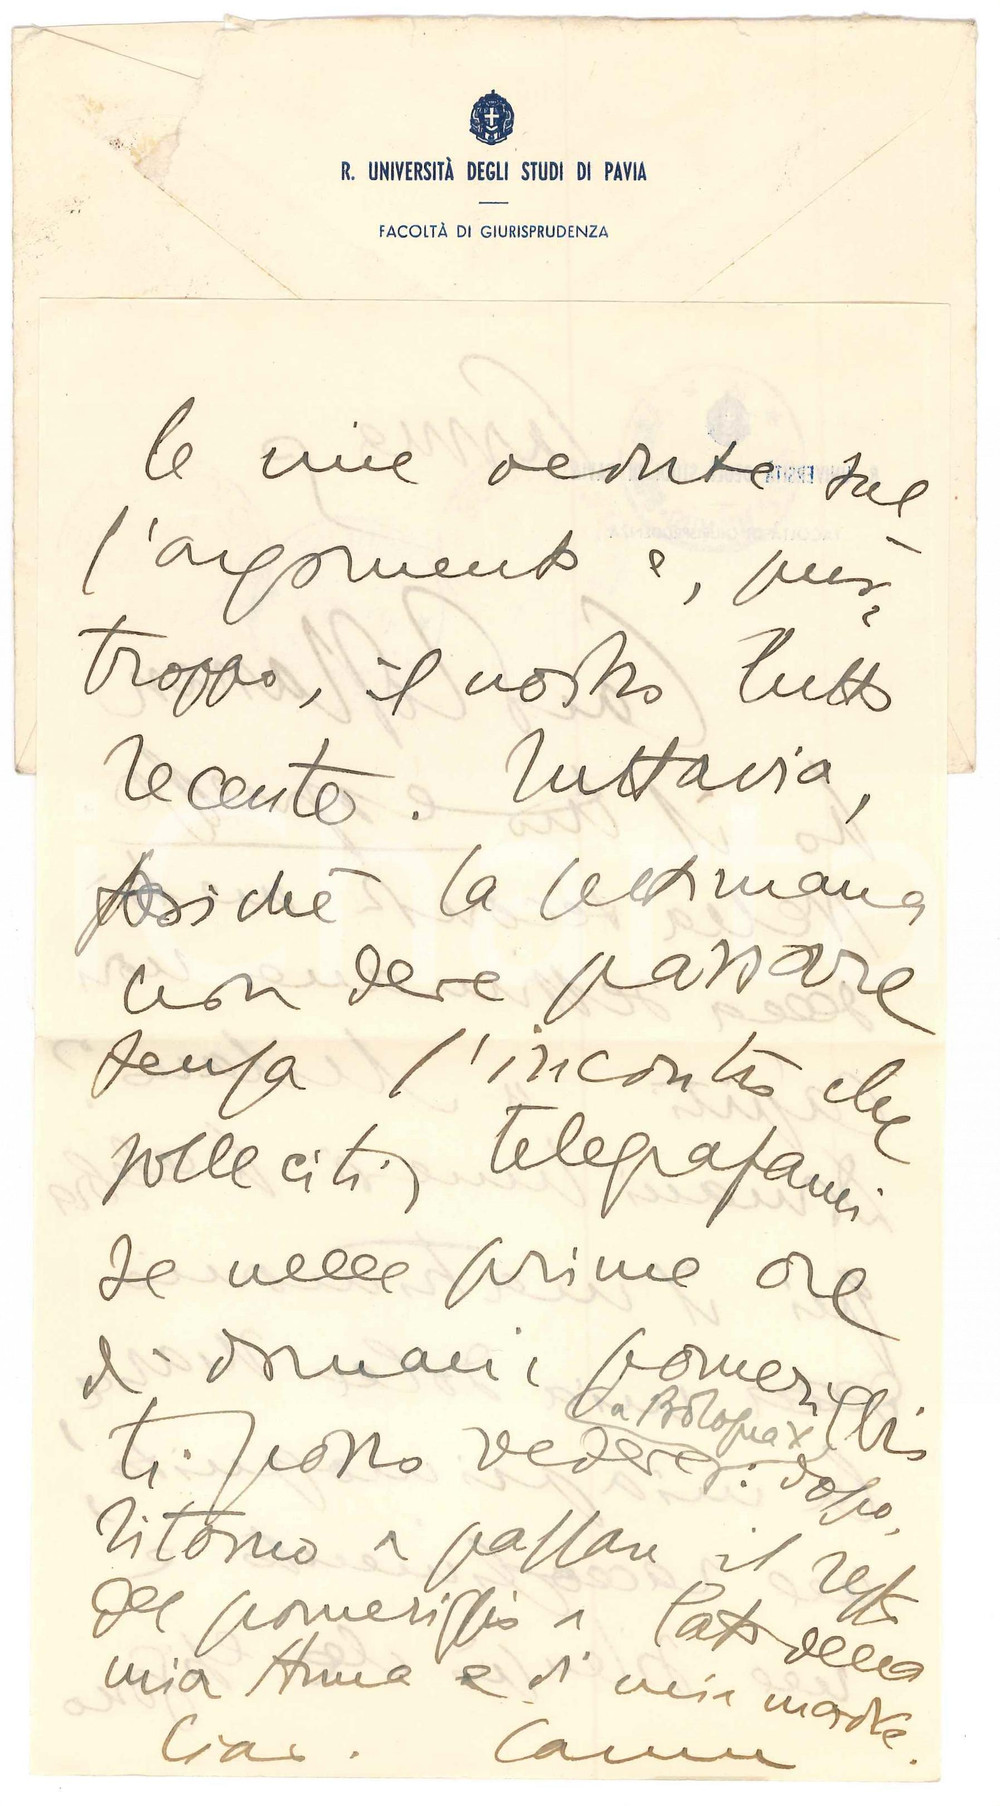 R. UNIVERSITÀ DEGLI STUDI DI PAVIA
FACOLTÀ DI GIURISPRUDENZA
le mie vedute sul
l'argomento è, pur-
troppo, il nostro lutto
recente. Tuttavia,
poiché la settimana
non deve passare
senza l'incontro che
solleciti, telegrafami
se nelle prime ore
di domani pomeriggio
a Bologna
ti posso vedere: dopo,
ritorno a passare il resto
del pomeriggio a lato della
mia Anna e di mia madre.
Ciao.